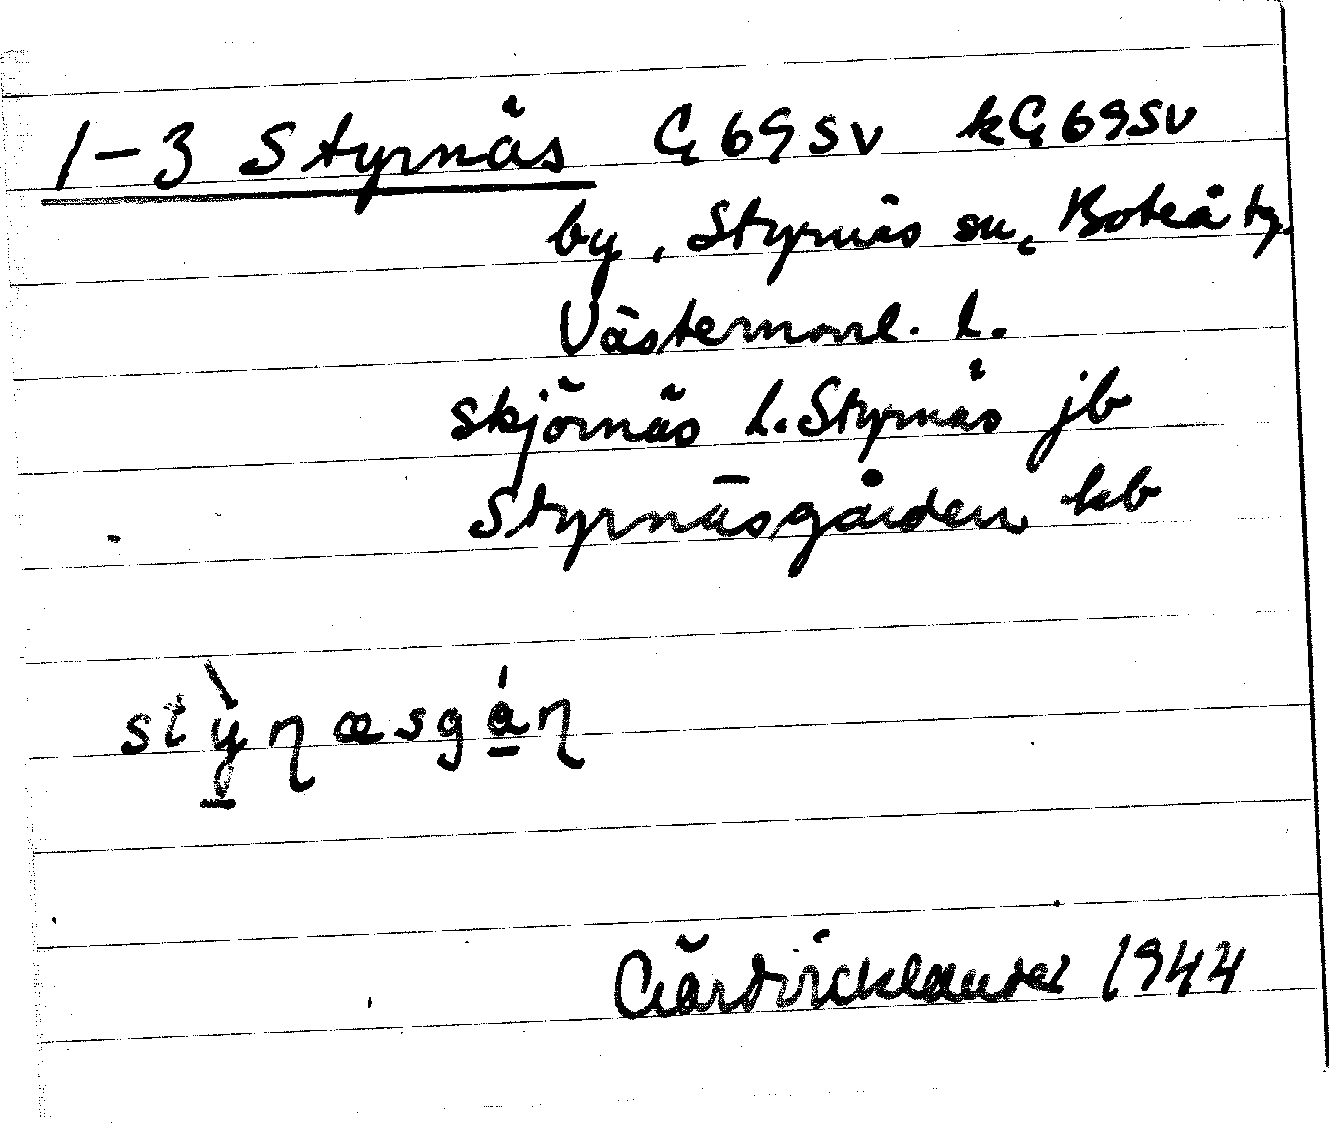 1-3 Styrnäs G 69 SV kG 69 SV
by, Styrnäs sn, Boteå tg.
Västernorrl. l.
Skjörnäs l. Styrnäs jb
Styrnäsgården kb
stỳɳæsgáɳ
1944